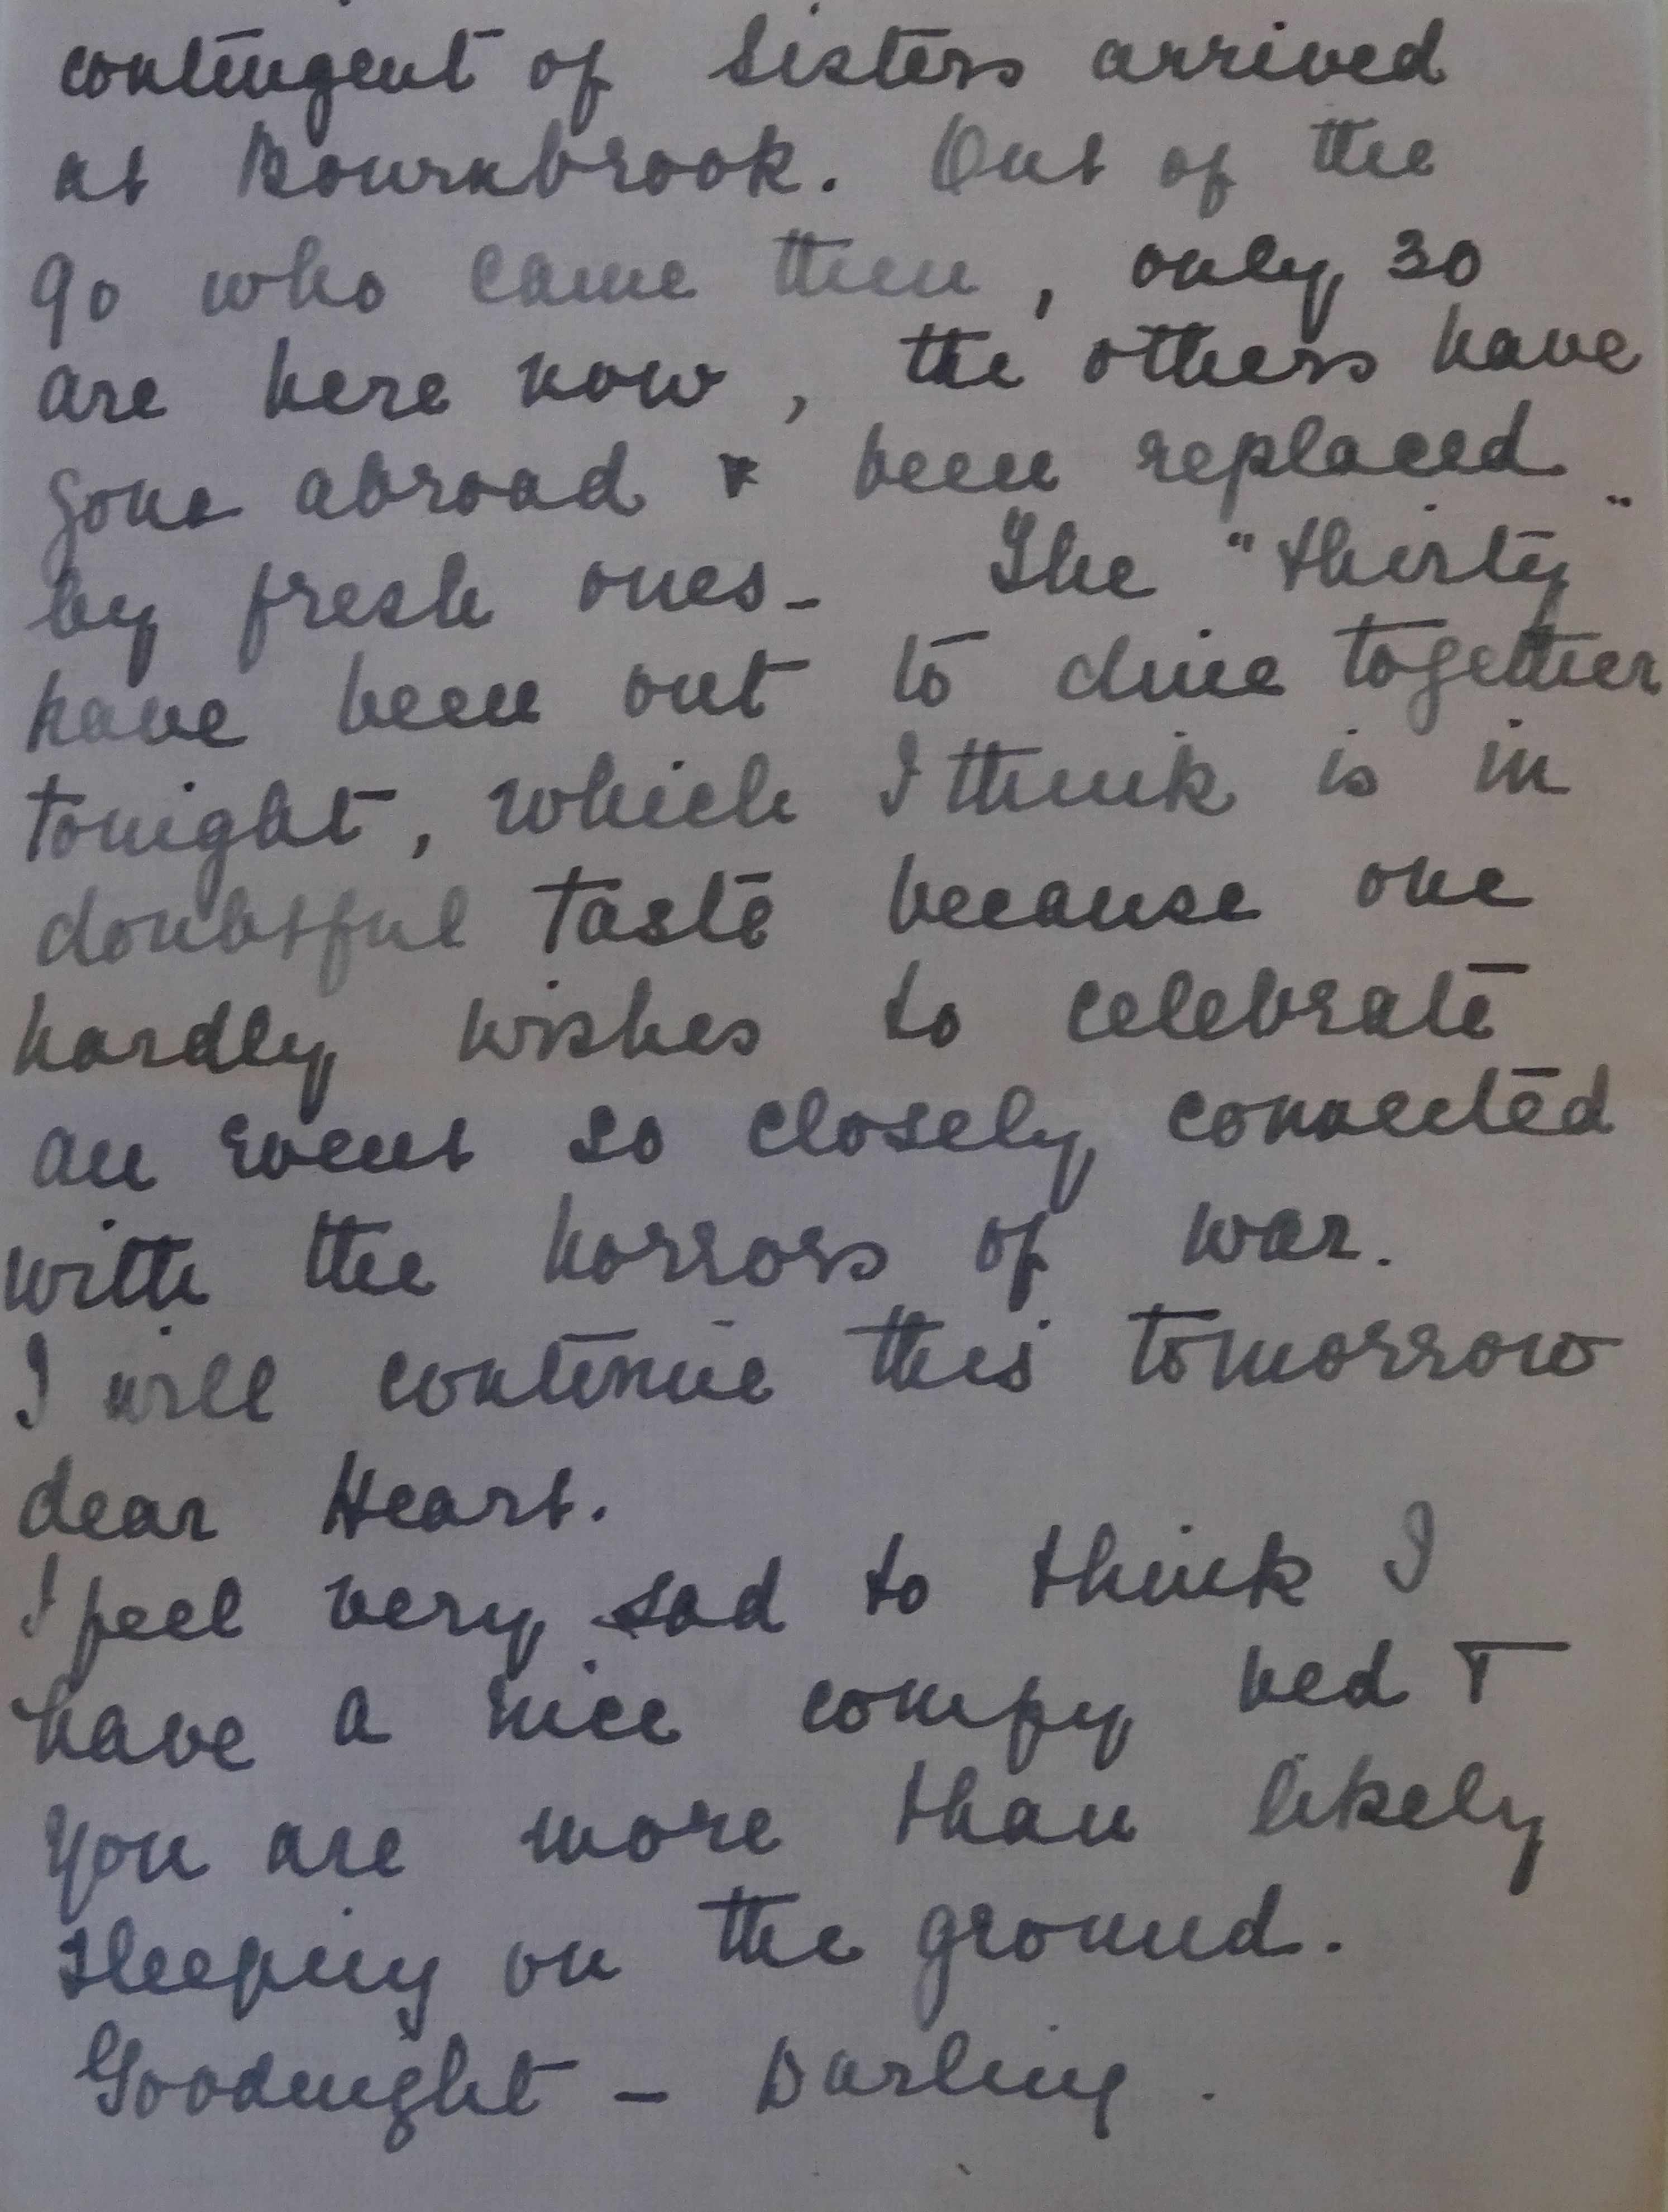 contingent of Sisters arrived
at Bournbrook. Out of the
90 who came then, only 30
are here now, the others have
gone abroad & been replaced
by fresh ones - The "thirty"
have been out to dine together
tonight, which I think is in
doubtful taste because one
hardly wishes to celebrate
an event so closely connected
with the horrors of war.
I will continue this tomorrow
dear Heart.
I feel very sad to think I
have a nice comfy bed &
you are more than likely
sleeping on the ground.
Goodnight - Darling.